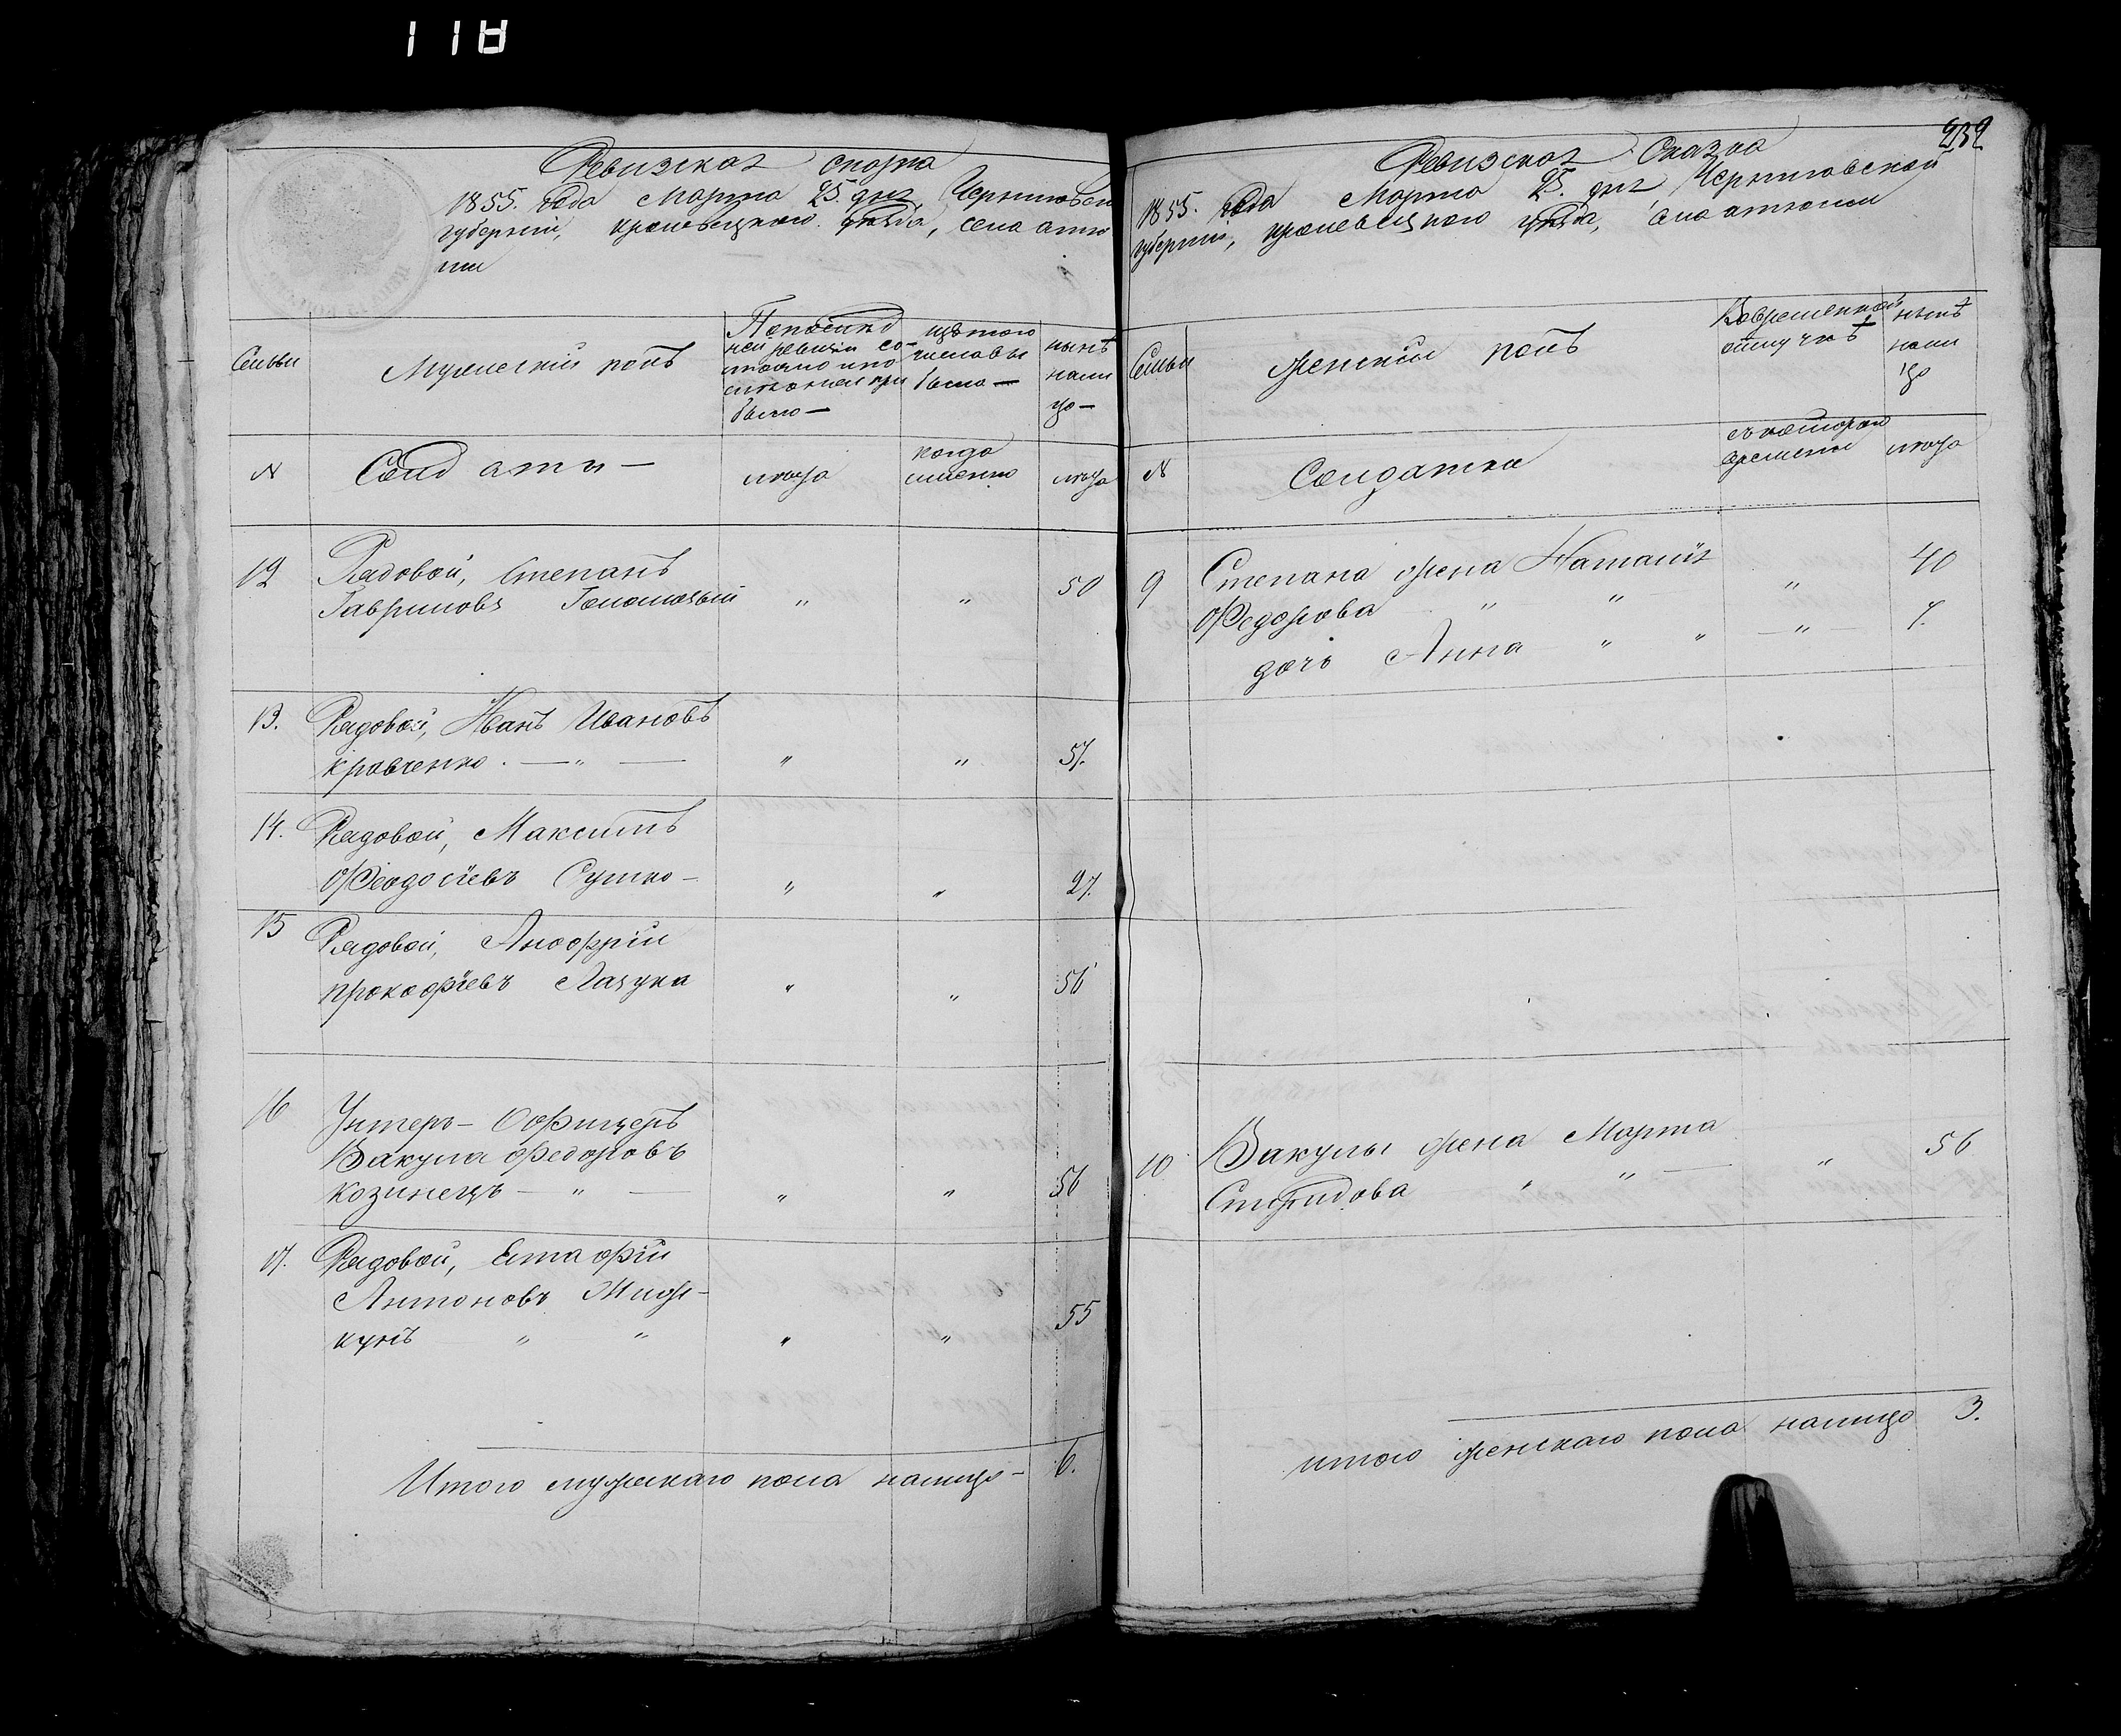 118
Ревизская сказка
1855. года Марта 25. дня, Черниговской
губернии, кролевецкого уѣзда, села атю
ши
Семьи
Мужеский полъ
По послѣд
ней ревизіи со-
стояло и по
слѣ оной при
было —
изъ того
числа вы
было —
нынѣ
нали
цо —
№
Солдаты —
лѣта
когда
именно
лѣта
12
Рядовой, Степанъ
Гавриловъ " " 50
13. Рядовой, Иванъ Ивановъ
Кравченко . — " — " " 57.
14. Рядовой, Максимъ
Феодосіевъ Сушко — " " 27.
15 Рядовой, Анофрій
Прокофіевъ Лазука " " 56
16 Унтеръ — Оофицеръ
Вакула Федоровъ
Козинецъ — " — " " 56
17. Рядовой, Естафій
Антоновъ
кунъ " " " " 55
Итого мужескаго пола налицо — 6.
232
Ревизская Сказка
1855. года Марта 25. дня Черниговской
губернии, кролевецкого уѣзда, села атюши
Семьи
Женский полъ
Вовременной
отлучкѣ
нынѣ
нали
цо
№
Солдатки
съ которого
времени
лѣта
9 Степана жена Наталія " 40
Федорова " "
дочь Анна " " — " — 7.
10 Вакулы жена Марта " 56
Спиридова " " —
итого женскаго пола налицо 3.